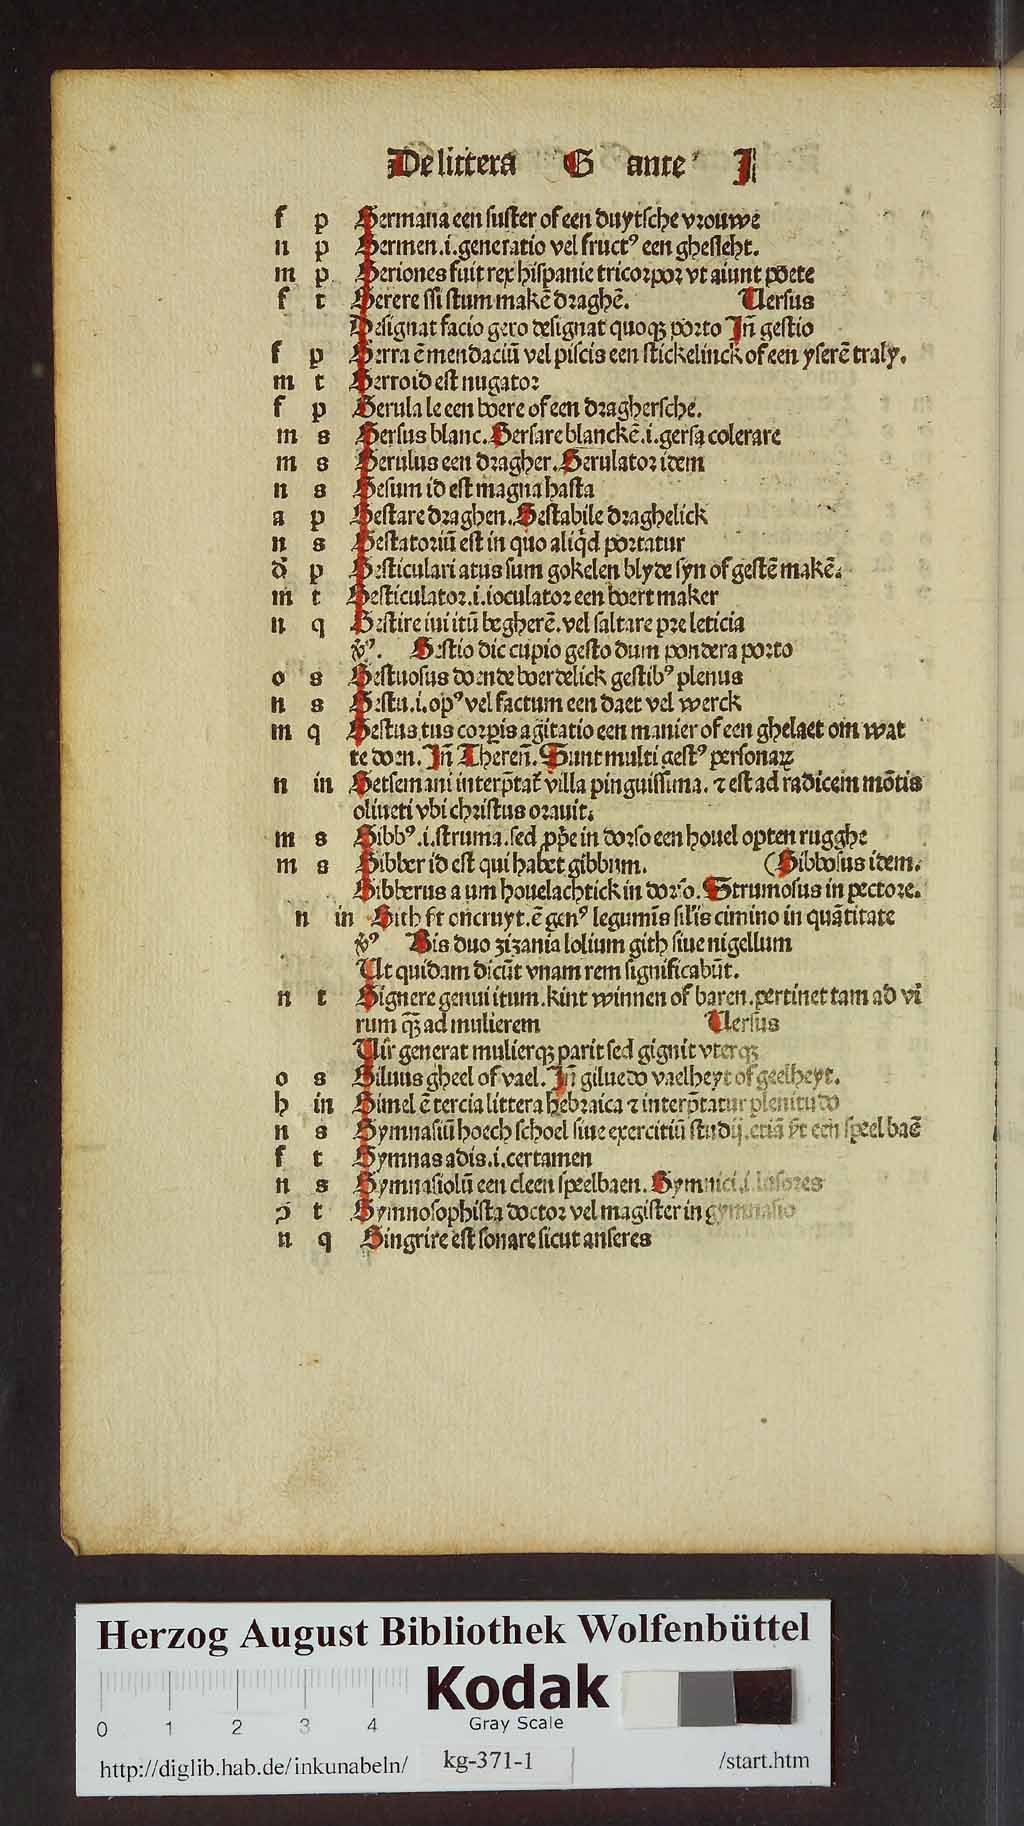 De littera G ante I
f p Germana een suster of een duytsche vrouwe
n p Germen .i. generatio vel fructꝰ een ghesleht.
m p Geriones fuit rex hispanie tricorpor vt aiunt poete
f t Gerere ssi stum makē draghē. Versus
Designat facio gero designat quoqꝫ porto Jn̄ gestio
f p Gerra ē mendaciū vel piscis een stickelinck of een yserē traly.
m t Gerro id est nugator
f p Gerula le een boere of een draghersche.
m s Gersus blanc. Gersare blanckē .i. gersa colerare
m s Gerulus een dragher. Gerulator idem
n s Gesum id est magna hasta
a p Gestare draghen. Gestabile draghelick
n s Gestatoriū est in quo aliqd̄ portatur
d̄ p Gesticulari atus sum gokelen blyde syn of gestē makē.
m t Gesticulator .i. ioculator een boert maker
n q Gestire iui itū begherē. vel saltare pre leticia
v̄ꝰ. Gestio dic cupio gesto dum pondera porto
o s Gestuosus doende boerdelick gestibꝰ plenus
n s Gestu .i. opꝰ vel factum een daet vel werck
m q Gestus tus corpis agitatio een manier of een ghelaet om wat
te doen. Jn̄ Theren̄. Sunt multi gestꝰ personaꝝ
n in Getsemani interp̄tat̄ villa pinguissima. ⁊ est ad radicem mōtis
oliueti vbi christus orauit.
m s Gibbꝰ .i. struma. sed ꝓp̄e in dorso een houel opten rugghe
m s Gibber id est qui habet gibbum. (Gibbosus idem.
Gibberus a um houelachtick in dorso. Strumosus in pectore.
n in Gith ft oncruyt. ē genꝰ legumīs silīs cimino in quātitate
v̄ꝰ Bis duo zizania lolium gith siue nigellum
Ut quidam dicūt vnam rem significabūt.
n t Gignere genui itum. kint winnen of baren. pertinet tam ad vi
rum qꝫ ad mulierem Versus
Uir generat mulierqꝫ parit sed gignit vterqꝫ
o s Giluus gheel of vael. Jn̄ giluedo vaelheyt of geelheyt.
h in Gimel ē tercia littera hebraica ⁊ interp̄tatur plenitudo
n s Gymnasiū hoech schoel siue exercitiū studij. etiā v̄t een speel baē
f t Gymnas adis .i. certamen
n s Gymnasiolū een cleen speelbaen. Gymnici .i. lusores
ꝯ t Gymnosophista doctor vel magister in gymnasio
n q Gingrire est sonare sicut anseres
Herzog August Bibliothek Wolfenbüttel
Kodak
Gray Scale
0 1 2 3 4
http://diglib.hab.de/inkunabeln/ kg-371-1 /start.htm